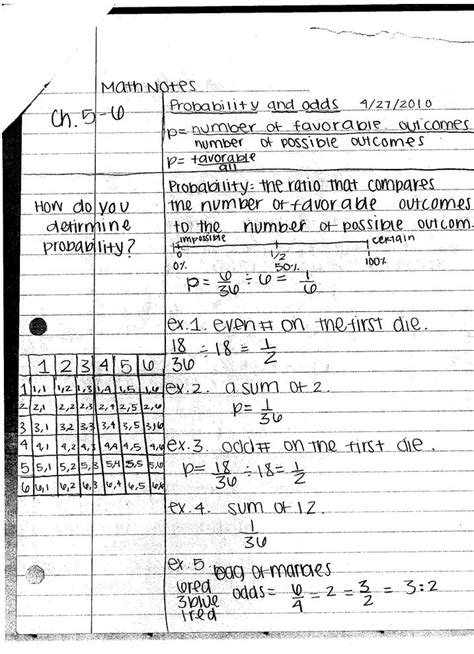 Math Notes
Ch. 5-6
Probability and odds 4/27/2010
p= number of favorable outcomes
number of possible outcomes
p= favorable
all
Probability: the ratio that compares
the number of favorable outcomes
to the number of possible outcom.
How do you
detirmine
probability?
impossible certain
0 1/2
0% 50% 100%
p = 6/36 ÷ 6 = 1/6
ex.1. even# on the first die.
18/36 ÷ 18 = 1/2
1 2 3 4 5 6
1 1,1 1,2 1,3 1,4 1,5 1,6
2 2,1 2,2 2,3 2,4 2,5 2,6
3 3,1 3,2 3,3 3,4 3,5 3,6
4 4,1 4,2 4,3 4,4 4,5 4,6
5 5,1 5,2 5,3 5,4 5,5 5,6
6 6,1 6,2 6,3 6,4 6,5 6,6
ex.2. a sum of 2.
p= 1/36
ex.3. odd# on the first die.
p= 18/36 ÷ 18 = 1/2
ex.4. sum of 12.
1/36
ex.5 bag of marbles
6red
3blue
1red
odds= 6/4 ÷ 2 = 3/2 = 3:2